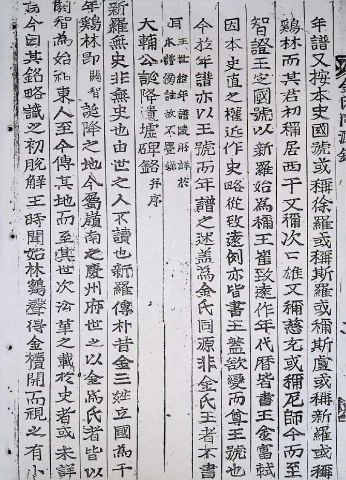 年譜又按本史國號或稱徐羅或稱斯羅或稱斯盧或稱新羅或稱
鷄林而其君初稱居西干又稱次次雄又稱慈充或稱尼師今而至
智證王定國號以新羅始爲稱王崔致遠作年代曆皆書王金富軾
因本史直之權近作史略從致遠例亦皆書王蓋欲變而尊王號也
今於年譜亦以王號而年譜之述蓋爲金氏同源非金氏王者不書
耳
王世年譜陵所詳於
本譜註故不疊錄
大輔公誕降遺墟碑銘幷序
新羅無史非無史也由世之人不讀也新羅傳朴昔金三姓立國爲千
年鷄林卽閼智誕降之地今屬嶺南之慶州府世之以金爲氏者皆以
閼智爲始祖東人至今傳其地而至其世次沿革之載於史者或未詳
焉今因其銘略識之初脫解王時聞始林鷄聲得金櫝開而視之有小